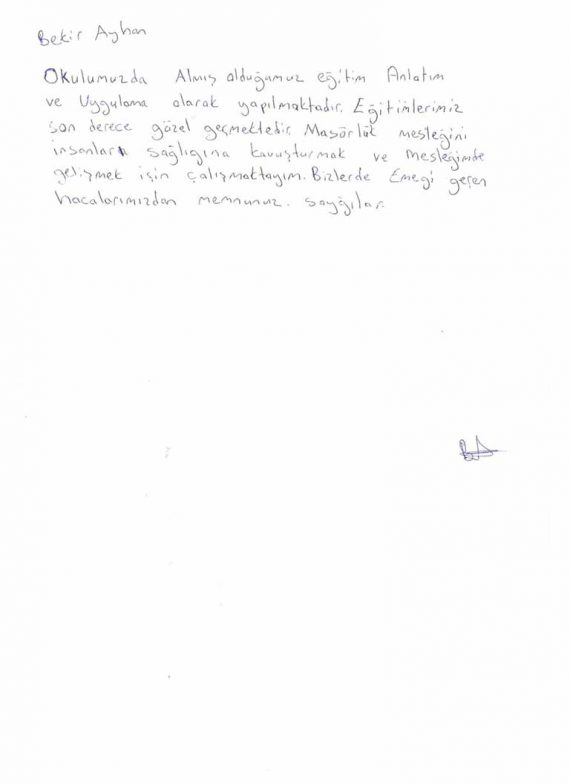 Bekir Ayhan
Okulumuzda Almış olduğumuz eğitim Anlatım
ve Uygulama olarak yapılmaktadır. Eğitimlerimiz
son derece gözel geçmektedir. Masörlük mesleğini
insanları sağlığına kavuşturmak ve mesleğimde
gelişmek için çalışmaktayım. Bizlerde Emeği geçen
hacalarımızdan memnunuz. saygılar.